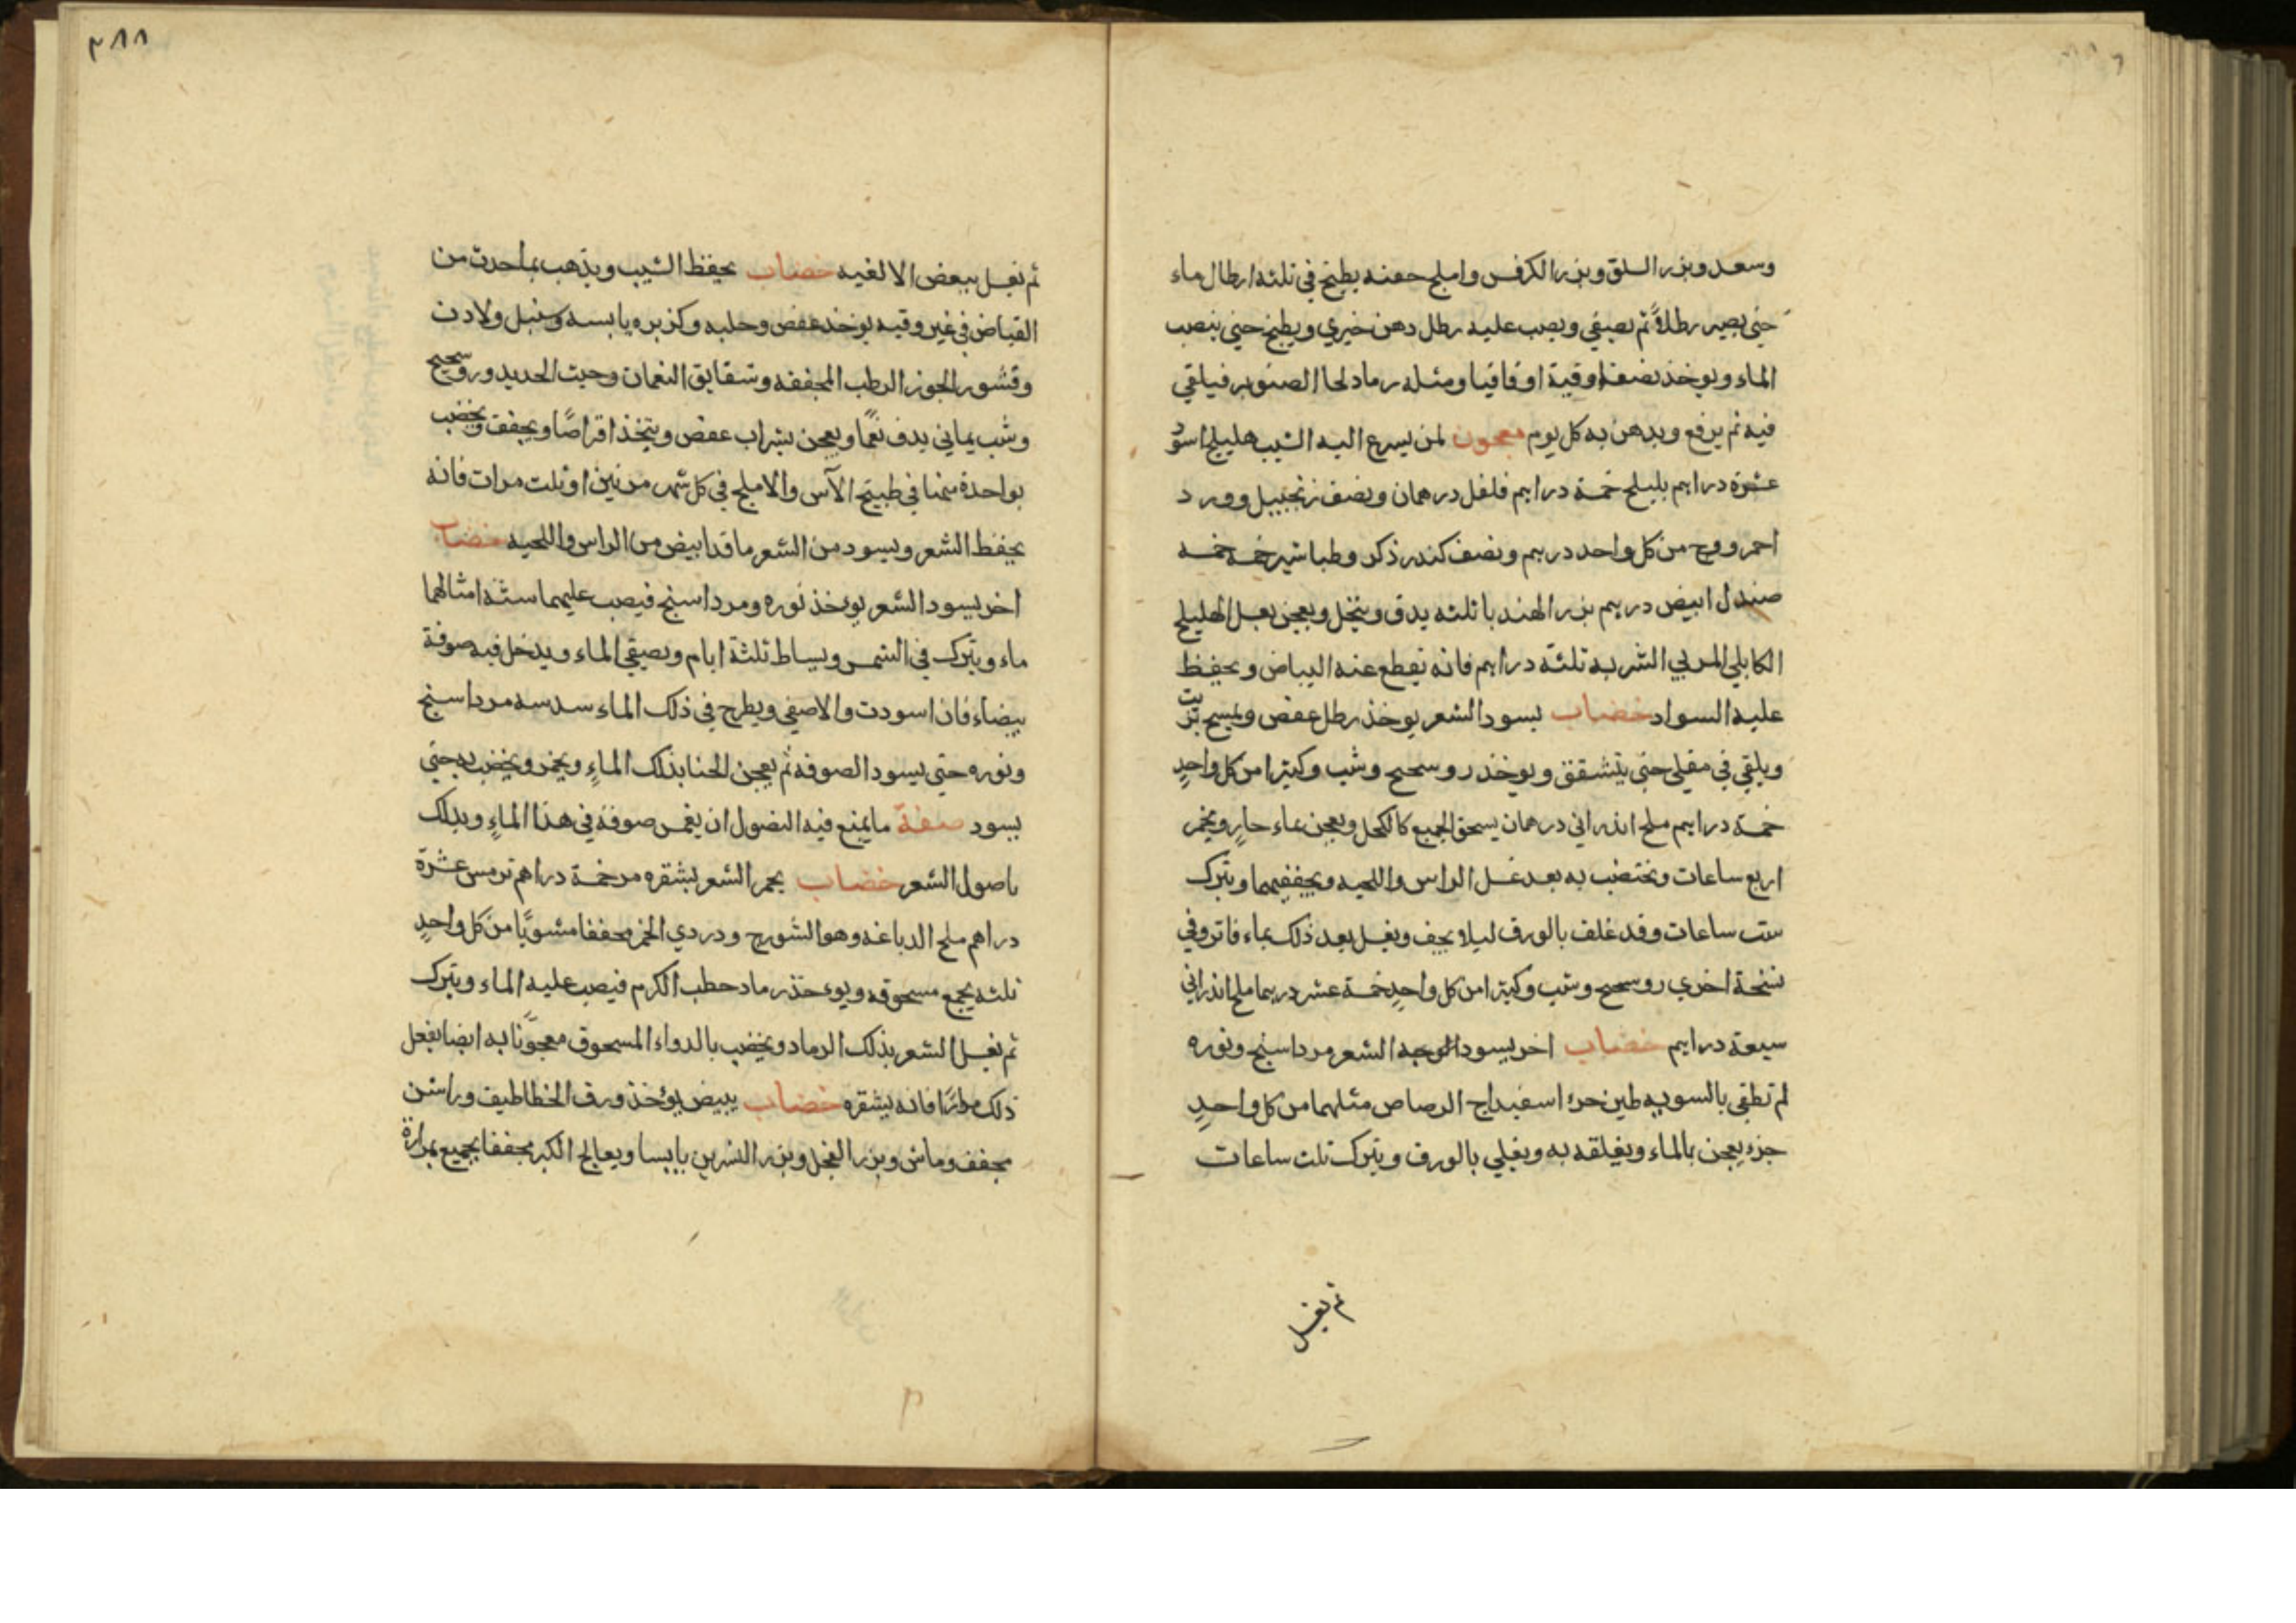 وسعد وبزر السلق وبزر الكرفس واملج حفنه يطبخ في ثلثه ارطال ماء
حتى يصير رطلاً ثم يصفي ويصب عليه رطل دهن خيري ويطبخ حتي ينصب
الماء ويوخذ نصف اوقية اوقاقيا ومثله رماد لحا الصنوبر فيلقي
فيه ثم يرفع ويدهن به كل يوم معجون لمن يسرع اليه الشيب هليلج اسود
عشرة دراهم بليلج خمسة دراهم فلفل درهمان ونصف زنجبيل وورد
احمر ووج من كل واحد درهم ونصف كندر ذكر وطباشير خمسه خمسه
صندل ابيض درهم بزر الهندبا ثلثه يدق وينخل ويعجن بعسل الهليلج
الكابلي المربي الشربه ثلثة دراهم فانه يقطع عنه البياض ويحفظ
عليه السواد خضاب يسود الشعر يوخذ رطل عفص ويمسح بزيت
ويلقي في مقلي حتي يتشقق ويوخذ روسحتج وشب وكثيرا من كل واحدٍ
خمسة دراهم ملح اندراني درهمان يسحق الجميع كالكحل ويعجن بماء حارٍ ويخمر
اربع ساعات ويختضب به بعد غسل الراس واللحيه ويجففهما ويترك
ست ساعات وقد غلف بالورق ليلا يجف ويغسل بعد ذلك بماء فاتر وفي
نسخة اخري روسحتج وشب وكثيرا من كل واحدٍ خمسة عشر درهما ملح اندراني
سبعة دراهم خضاب اخر يسود الوجه الشعر مرداسنج ونوره
لم تطفى بالسويه طين حر اسفيداج الرصاص مثلهما من كل واحدٍ
جزء يعجن بالماء ويغلفه به ويغلي بالورق ويترك ثلث ساعات
ثم يغسل
٣٨٨
ثم يغسل ببعض الالغيه خضاب يحفظ الشيب ويذهب بما حدث من
القباض في غير وقيه يوخذ عفص وحلبه وكزبره يابسه وسنبل ولادن
وقشور الجوز الرطب المجففه وشقايق النعمان وخبث الحديد وروسحتج
وشب يماني يدف نعمًا ويعجن بشراب عفص ويتخذ اقراصًا ويجفف ويخضب
بواحدة منها في طبيخ الآس والاملج في كل شهر مرتين او ثلث مرات فانه
يحفظ الشعر ويسود من الشعر ما قد ابيض من الراس واللحيه خضاب
اخر يسود الشعر يوخذ نوره ومرداسنج فيصب عليهما ستة امثالهما
ماء ويترك في الشمس ويساط ثلثة ايام ويصفي الماء ويدخل فيه صوفة
بيضاء فان اسودت والا صفي ويطرح في ذلك الماء سدسه مرداسنج
ونوره حتى يسود الصوفه ثم يعجن الحنا بذلك الماءِ ويخمر ويخضب به حتي
يسود صفة ما يمنع فيه النضول ان يغمس صوفة في هذا الماءِ ويدلك
باصول الشعر خضاب يحمر الشعر بشقره مر خمسة دراهم ترمس عشرة
دراهم ملح الدباغه وهو الشورج ودردي الخمر مجففا مشويًا من كل واحدٍ
ثلثه يجمع مسحوقه ويوخذ رماد حطب الكرم فيصب عليه الماء ويترك
ثم يغسل الشعر بذلك الرماد ويخضب بالدواء المسحوق معجونًا به ايضا يفعل
ذلك مرارًا فانه يشقره خضاب يبيض يؤخذ ورق الخطاطيف وراسن
مجفف وماش وبزر الفجل وبزر النسرين يابسا ويعالج الكبر مجففا يجميع بمرارة